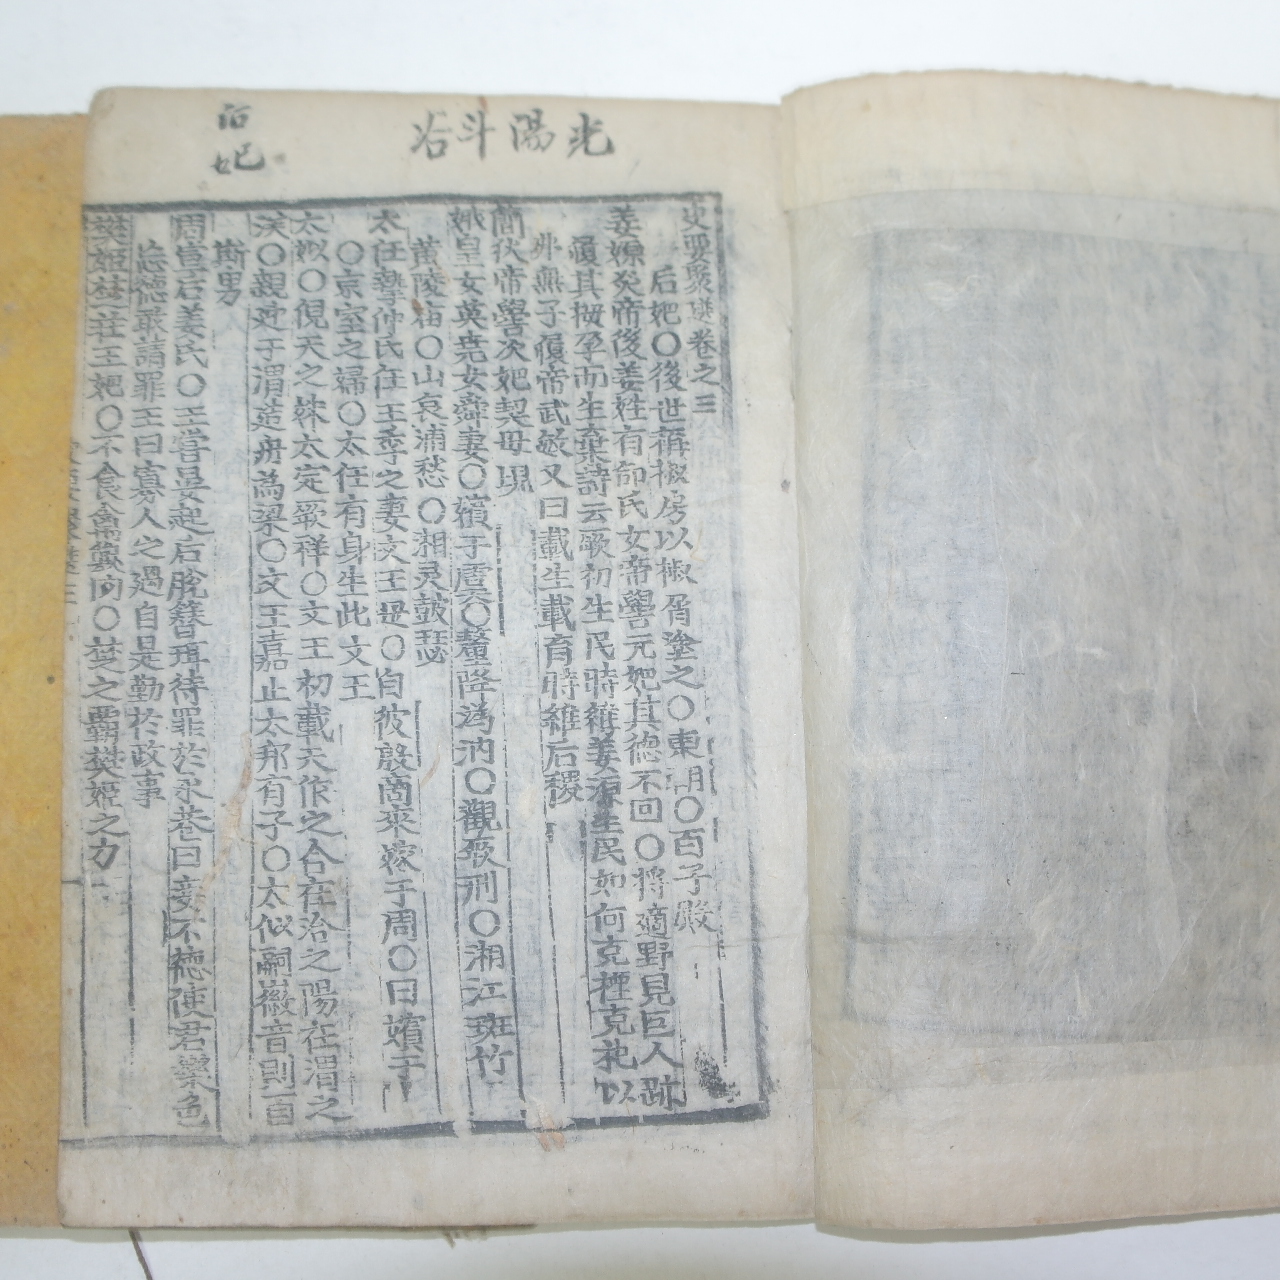 光陽斗
后妃
史要聚選卷之三
后妃○後世稱椒房以椒屑塗之○東朝○百子殿
姜嫄炎帝後姜姓有邰氏女帝嚳元妃其德不回○將適野見巨人跡
履其拇孕而生棄詩云厥初生民時維姜嫄生民如何克禋克祀以
弗無子履帝武敏又曰載生載育時維后稷
簡狄帝嚳次妃契母
娥皇女英堯女舜妻○嬪于虞○釐降潙汭○觀厥刑○湘江斑竹
黃陵庙○山哀浦愁○湘灵鼓瑟
太任摯仲氏任王季之妻文王母○自彼殷商來嫁于周○曰嬪于
○京室之婦○太任有身生此文王
太姒○俔天之妹太定厥祥○文王初載天作之合在洽之陽在渭之
涘○親迎于渭造舟為梁○文王嘉止太邦有子○太似嗣徽音則百
斯男
周宣后姜氏○王嘗晏起后脫簪珥待罪於永巷曰妾不德使君樂色
忘德敢請罪王曰寡人之過自是勤於政事
樊姬楚莊王妃○不食禽獸肉○楚之覇樊姬之力